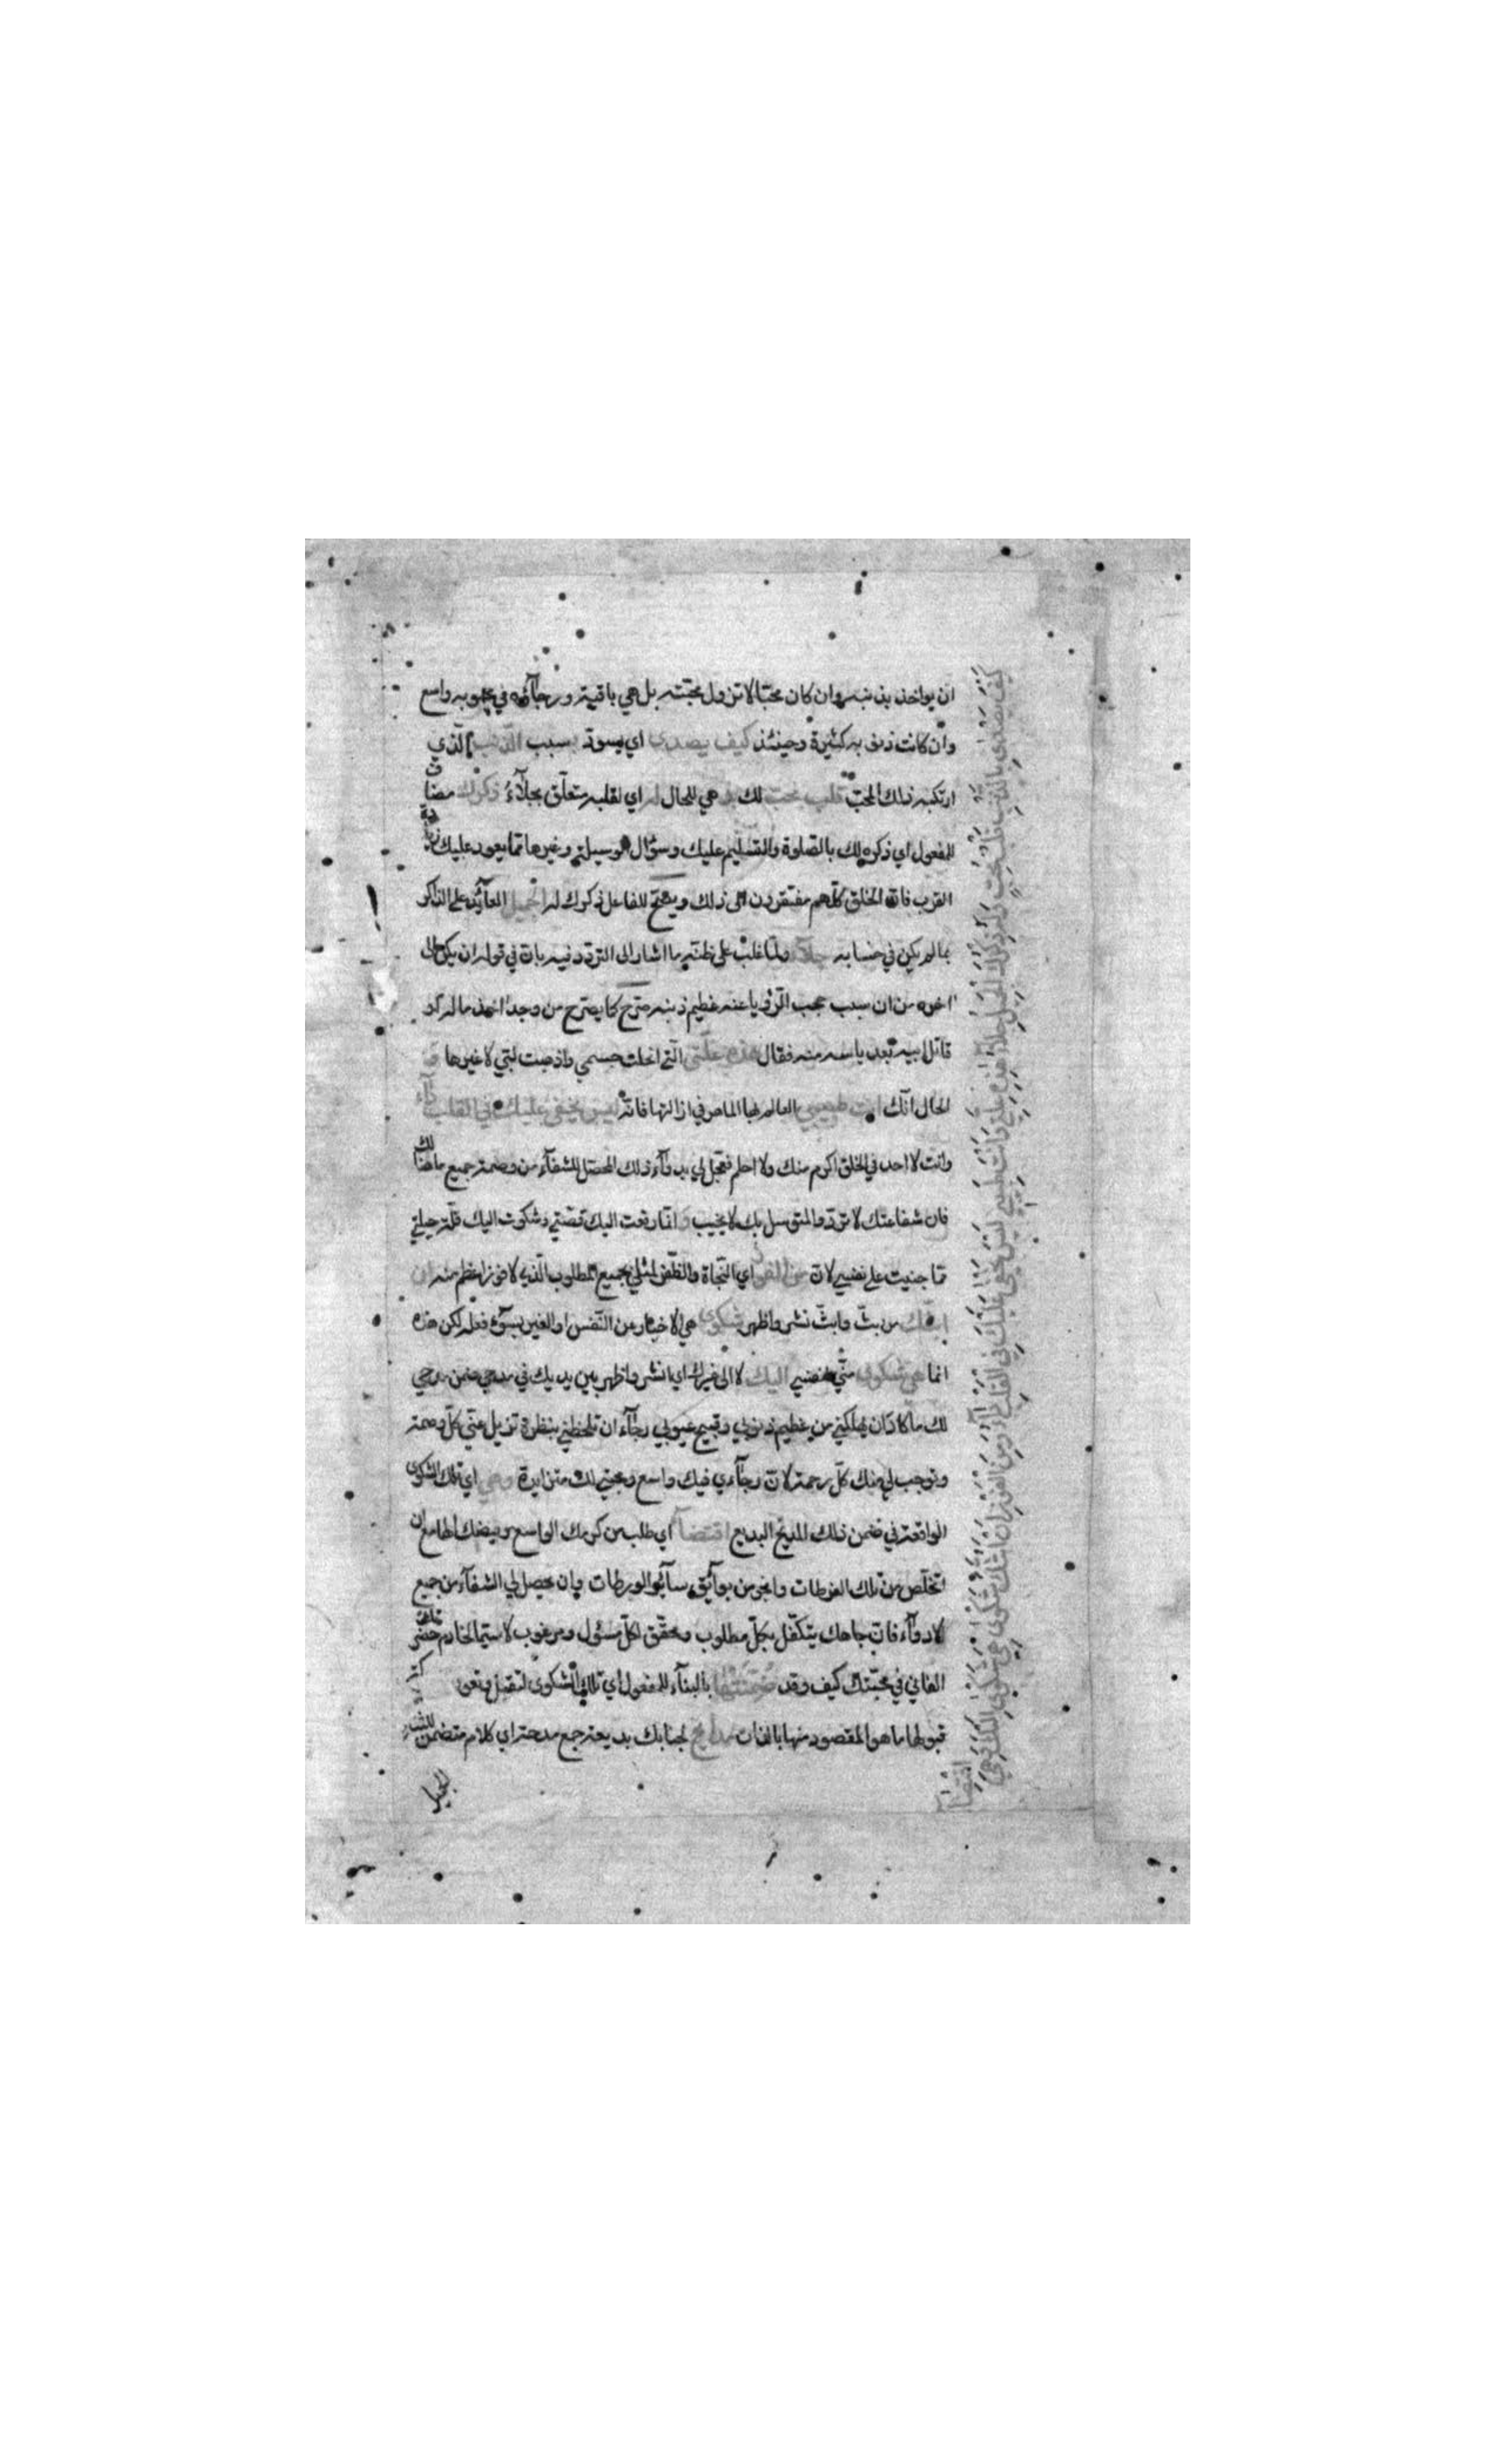 ان يواخذ بذنبه وان كان محبا لا تزول محبته بل هي باقية ورجاؤه في محبوبه واسع
وان كانت ذنوبه كثيرة وحينئذ كيف يصدى اي يسود بسبب الذنب الذي
ارتكبه ذلك المحب قلب محب لك هي للحال له اي لقلبه متعلق بجلاء ذكرك مضاف
للمفعول اي ذكره لك بالصلوة والتسليم عليك وسؤال الوسيلة وغيرها مما يعود عليك زيادة
القرب فان الخلق كلهم مفتقرون الى ذلك ويصح للفاعل ذكرك له الجميل العائد على الذاكر
بما لم يكن في حسابه جلاء ولما غلب على ظنه ما اشار الى التردد فيه بان في قوله ان يكن الى
اخره من ان سبب حجب الرؤيا عنه عظيم ذنبه صرح كما يصرح من وجد اخذ مال او
قاتل ابيه بعد ياسه منه فقال هذه علتي التي انحلت جسمي واذهبت لبي لا غيرها و
الحال انك انت طبيبي العالم بها الماهر في ازالتها فانه ليس يخفى عليك في القلب داء
وانت لا احد في الخلق اكرم منك ولا احلم فعجل لي بدواء ذلك المحصل للشفاء من وصمة جميع ما هنالك
فان شفاعتك لا ترد والمتوسل بك لا يخيب و انما رفعت اليك قصتي وشكوت اليك قلة حيلتي
مما جنيت على نفسي لان من الفوز اي النجاة والظفر لمثلي بجميع المطلوب الذي لا فوز اعظم منه ان
ابثك من بث وابث نشر واظهر شكوى هي الاخبار عن النفس او الغير بسوء فعله لكن هذه
انما هي شكوى مني نفسي اليك لا الى غيرك اي انشر واظهر بين يديك في مدحي ضمن مدحي
لك ما كاد ان يهلكني من عظيم ذنوبي وقبيح عيوبي رجاء ان تلحظني بنظرة تزيل عني كل وصمة
وتوجب لي منك كل رحمة لان رجائي فيك واسع ومحبتي لك متزايدة وهي اي تلك الشكوى
الواقعة في ضمن ذلك المديح البديع اقتضاء اي طلب من كرمك الواسع وفيضك الهامع ان
اتخلص من تلك الفرطات وانجو من بوائق سائر الورطات وان يحصل لي الشفاء من جميع
الادواء فان جاهك يتكفل بكل مطلوب ومحقق لكل مسئول ومرغوب لا سيما لخادم حضرتك
الفاني في محبتك كيف وقد ضمنتها بالبناء للمفعول اي تلك الشكوى لتقبل
قبولها ما هو المقصود منها بالذات مدائح لجنابك بديعة جمع مدحة اي كلام متضمن للثناء
الجميل
كيف يصدى بالذنب قلب محب وله ذكرك الجميل جلاء هذه علتي وانت طبيبي ليس يخفى عليك في القلب داء ومن الفوز ان ابثك شكوى هي شكوى اليك وهي
اقتضاء